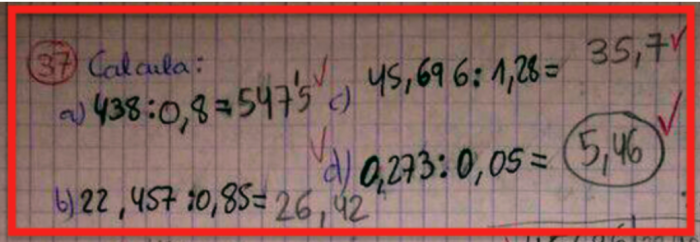 37 Calcula:
a) 438:0,8=547'5
c) 45,696:1,28= 35,7
b) 22,457:0,85= 26,42
d) 0,273:0,05= 5,46